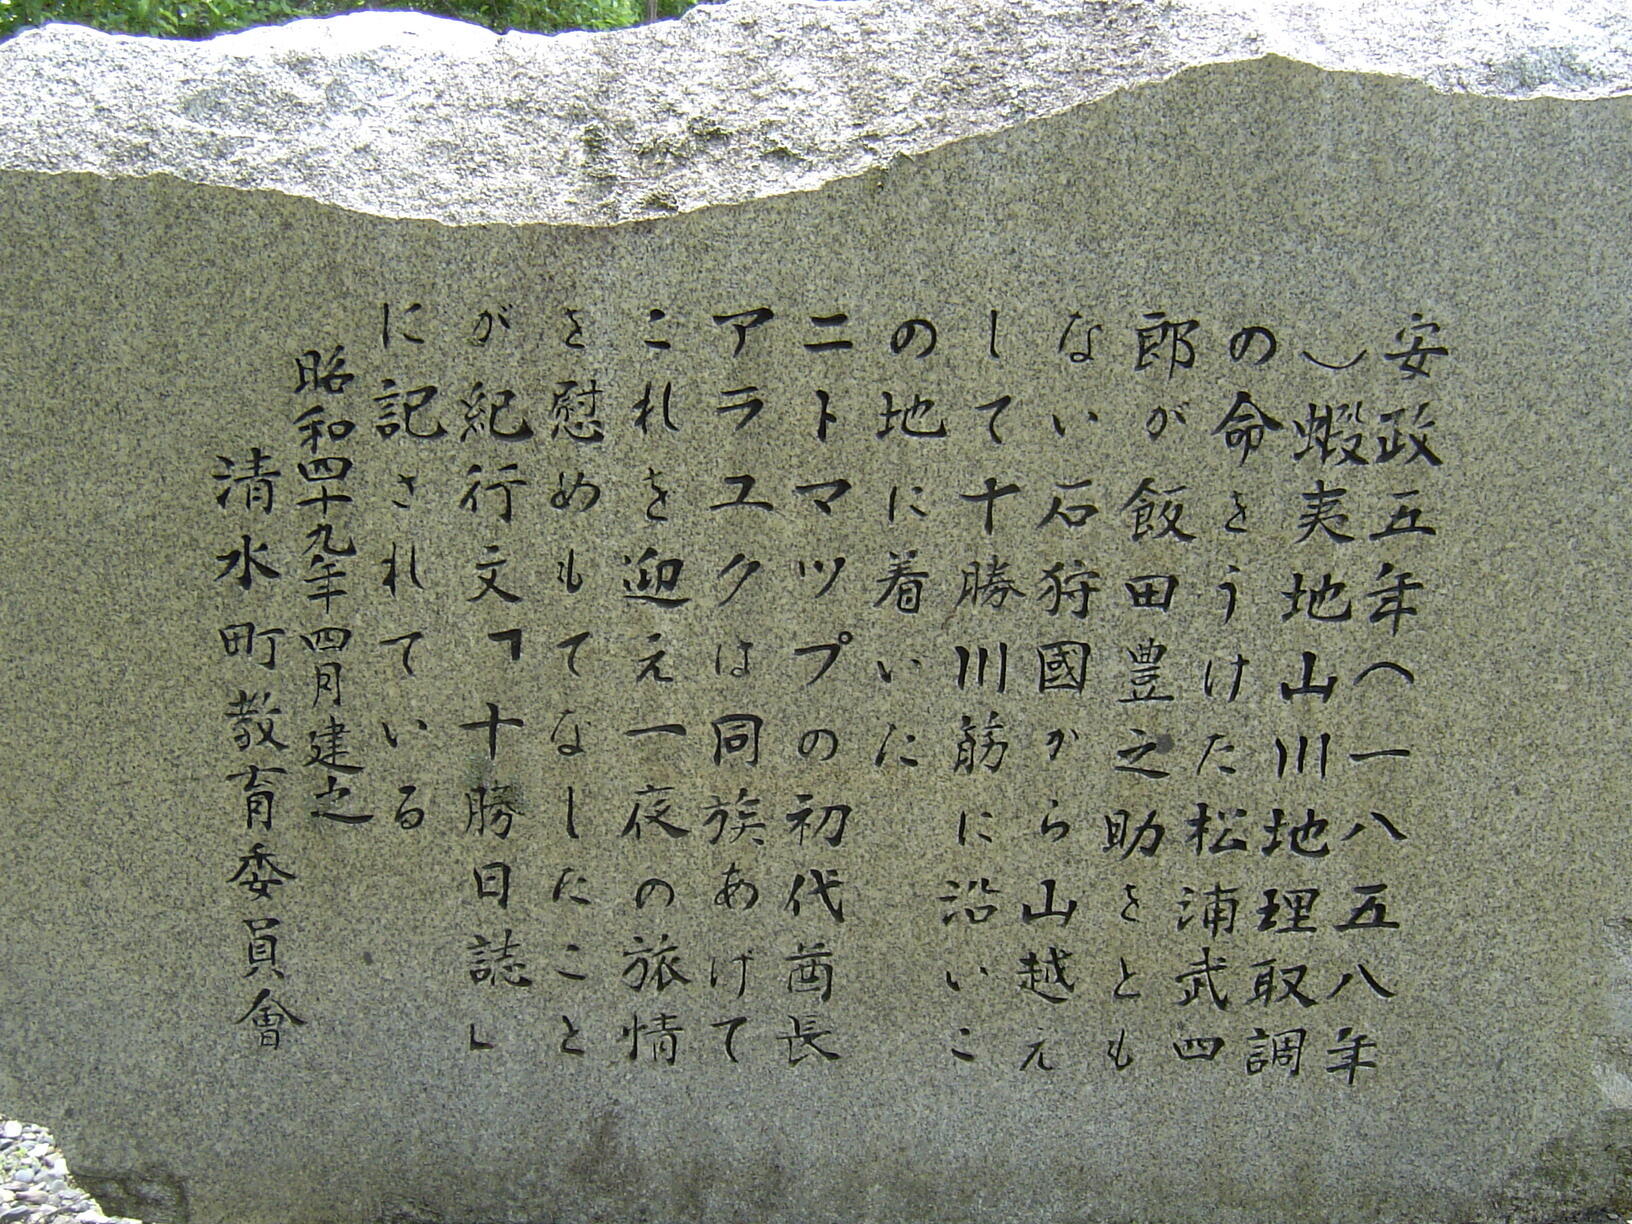 安政五年(一八五八年
)蝦夷地山川地理取調
の命をうけた松浦武四
郎が飯田豊之助をとも
ない石狩國から山越え
して十勝川筋に沿いこ
の地に着いた
ニトマツプの初代酋長
アラユクは同族あげて
これを迎え一夜の旅情
を慰めもてなしたこと
が紀行文「十勝日誌」
に記されている
昭和四十九年四月建之
清水町教育委員會